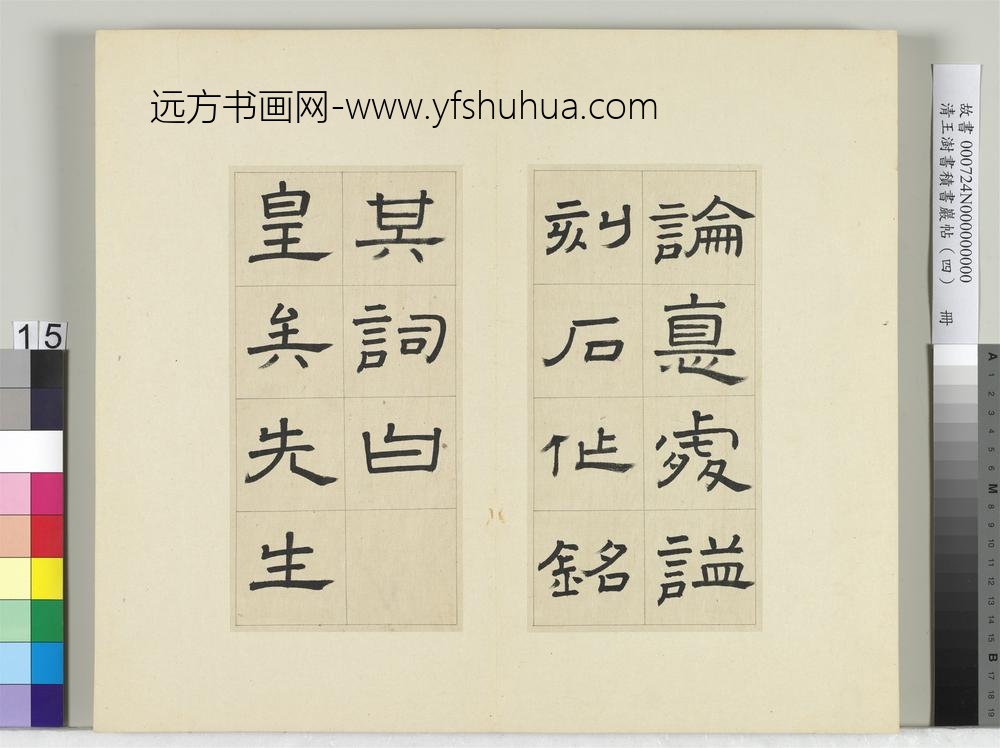 远方书画网-www.yfshuhua.com
論悳處謚
刻石作銘
其詞曰
皇矣先生
故書 000724N000000000
清王澍書積書巖帖(四) 冊
15
A 1 2 3 4 5 6 M 8 9 10 11 12 13 14 15 B 17 18 19